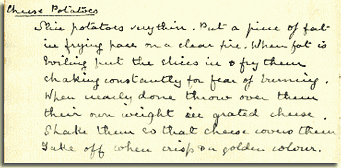 Cheese Potatoes
Slice potatoes very thin. Put a piece of fat
in frying pan on a clear fire. When fat is
boiling put the slices in & fry them
shaking constantly for fear of burning.
When nearly done throw over them
their own weight in grated cheese.
Shake them so that cheese covers them
Take off when crisp & golden colour.